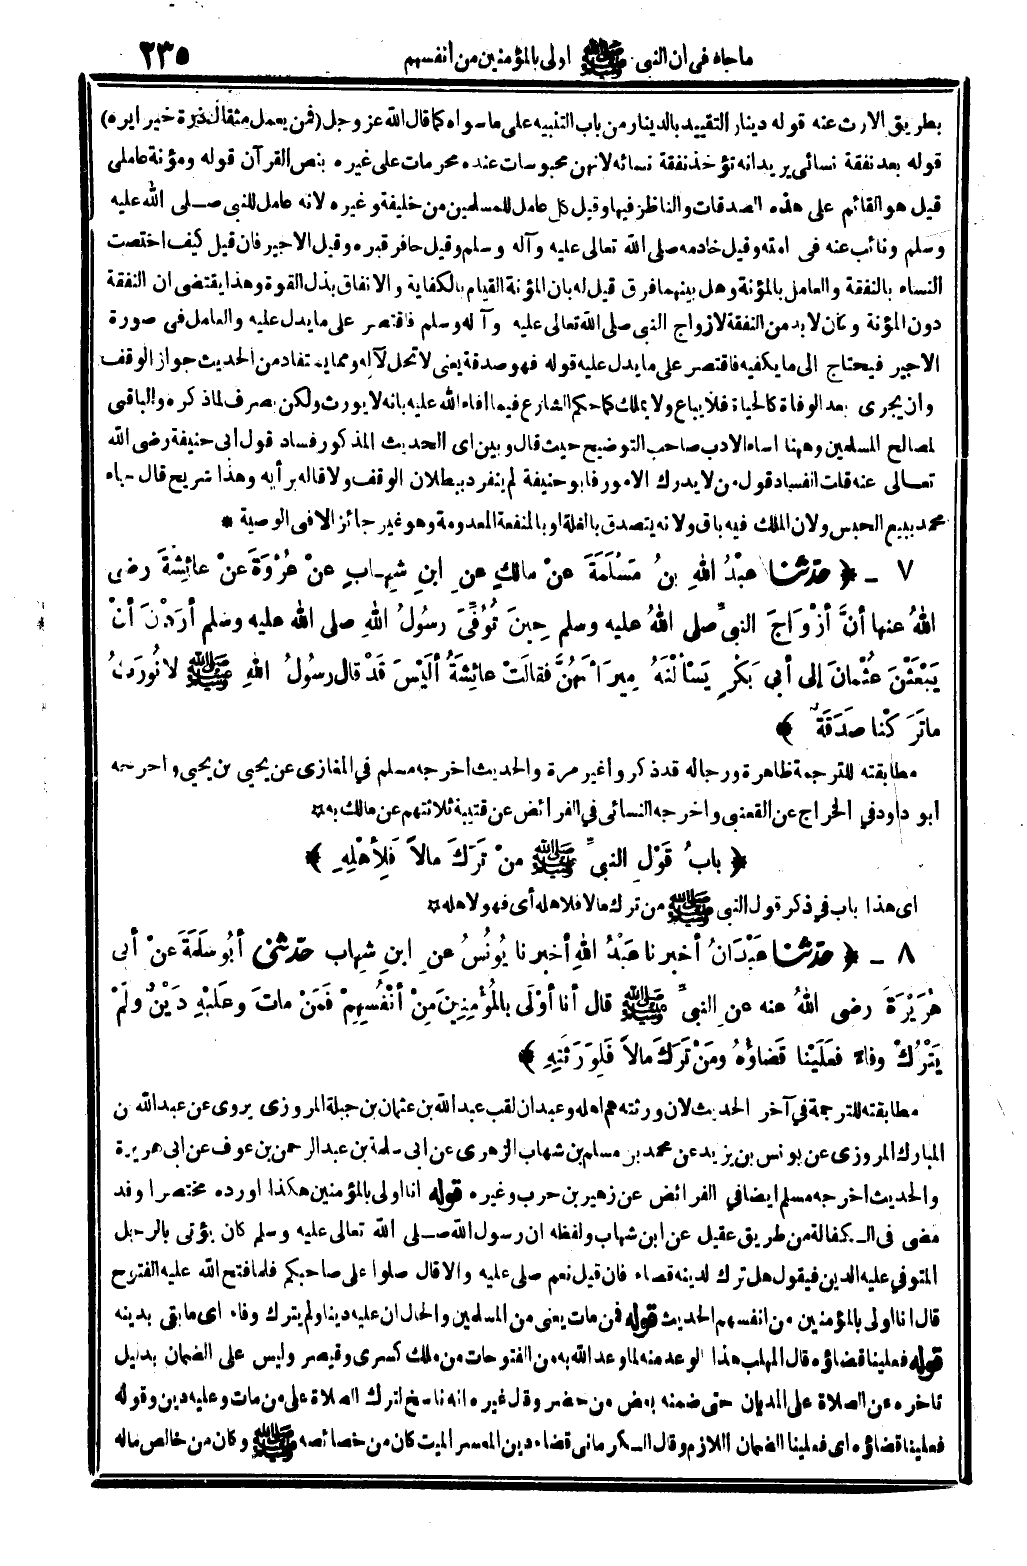 ما جاء في أن النبي ﷺ أولى بالمؤمنين من أنفسهم ٢٣٥
بطريق الارث عنه قوله دينار التقييد بالدينار من باب التنبيه على ما سواه كما قال الله عز وجل (فمن يعمل مثقال ذرة خيرا يره)
قوله بعد نفقة نسائي يريد انه تؤخذ نفقة نسائه لانهن محبوسات عنده محرمات على غيره بنص القرآن قوله ومؤنة عاملى
قيل هو القائم على هذه الصدقات والناظر فيها وقيل كل عامل للمسلمين من خليفة وغيره لانه عامل للنبي صلى الله عليه
وسلم ونائب عنه في امته وقيل خادمه صلى الله تعالى عليه وآله وسلم وقيل حافر قبره وقيل الاجير فان قيل كيف اختصت
النساء بالنفقة والعامل بالمؤنة وهل بينهما فرق قيل له بان المؤنة القيام بالكفاية والانفاق بذل القوة وهذا يقتضى ان النفقة
دون المؤنة وكان لابد من النفقة لازواج النبي صلى الله تعالى عليه وآله وسلم فاقتصر على ما يدل عليه والعامل في صورة
الاجير فيحتاج الى ما يكفيه فاقتصر على ما يدل عليه قوله فهو صدقة يعنى لا تحل لآله ومما يستفاد من الحديث جواز الوقف
وان يجرى بعد الوفاة كالحياة فلا يباع ولا يملك كما حكم الشارع فيما افاء الله عليه بانه لا يورث ولكن يصرف لما ذكره والباقي
لمصالح المسلمين وههنا اساء الادب صاحب التوضيح حيث قال وبين اى الحديث المذكور فساد قول ابى حنيفة رضى الله
تعالى عنه قلت الفساد قول من لا يدرك الامور فابو حنيفة لم ينفرد ببطلان الوقف ولا قاله برأيه وهذا شريح قال جاء
محمد ببيع الحبس ولان الملك فيه باق ولانه يتصدق بالغلة او بالمنفعة المعدومة وهو غير جائز الا فى الوصية *
٧ - ﴿ حدثنا عبْدُ اللهِ بنُ مَسْلَمَةَ عنْ مالكٍ عنِ ابنِ شِهابٍ عنْ عُرْوَةَ عنْ عائِشَةَ رضى
اللهُ عنها أنَّ أزْواجَ النبىِّ صلى اللهُ عليه وسلم حِينَ تُوُفِّىَ رسولُ اللهِ صلى الله عليه وسلم أرَدْنَ أنْ
يَبْعَثْنَ عُثْمانَ إلى أبى بَكْرٍ يَسْألْنَهُ مِيرَاثَهُنَّ فقالَتْ عائِشَةُ ألَيْسَ قَدْ قال رسولُ اللهِ ﷺ لا نُورَثُ
ماتَرَكْنا صَدَقَةٌ ﴾
مطابقته للترجمة ظاهرة ورجاله قد ذكروا غير مرة والحديث أخرجه مسلم في المغازى عن يحيى بن يحيى واخرجه
ابو داود في الخراج عن القعنبى واخرجه النسائى في الفرائض عن قتيبة ثلاثتهم عن مالك به ☆
﴿ بابُ قَوْلِ النبىِّ ﷺ منْ تَرَكَ مالاً فَلِأهْلِهِ ﴾
اى هذا باب في ذكر قول النبي ﷺ من ترك مالا فلاهله أى فهو لاهله ☆
٨ - ﴿ حدثنا عَبْدَانُ أخبرنا عبْدُ اللهِ أخبرنا يُونُسُ عنِ ابنِ شِهاب حدّثنى أبُو سَلَمَةَ عنْ أبى
هُرَيْرَةَ رضى اللهُ عنه عنِ النبىِّ ﷺ قال أنا أوْلَى بالمُؤْمِنِينَ مِنْ أنْفُسِهِمْ فَمَنْ ماتَ وعلَيْهِ دَيْنٌ ولَمْ
يَتْرُكْ وفاءً فعَلَيْنا قَضاؤُهُ ومَنْ تَرَكَ مالاً فَلِوَرَثَتِهِ ﴾
مطابقته للترجمة في آخر الحديث لان ورثته هم اهله وعبدان لقب عبد الله بن عثمان بن جبلة المروزى يروى عن عبد الله بن
المبارك المروزى عن يونس بن يزيد عن محمد بن مسلم بن شهاب الزهرى عن ابى سلمة بن عبد الرحمن بن عوف عن ابى هريرة
والحديث اخرجه مسلم ايضا في الفرائض عن زهير بن حرب وغيره قوله انا اولى بالمؤمنين هكذا اورده مختصرا وقد
مضى فى الكفالة من طريق عقيل عن ابن شهاب ولفظه ان رسول الله صلى الله تعالى عليه وسلم كان يؤتى بالرجل
المتوفي عليه الدين فيقول هل ترك لدينه قضاء فان قيل نعم صلى عليه والا قال صلوا على صاحبكم فلما فتح الله عليه الفتوح
قال انا اولى بالمؤمنين من انفسهم الحديث قوله فمن مات يعنى من المسلمين والحال ان عليه دينا ولم يترك وفاء اى ما يفى بدينه
قوله فعلينا قضاؤه قال المهلب هذا الوعد منه لما وعد الله به من الفتوحات من ملك كسرى وقيصر وليس على الضمان بدليل
تاخره عن الصلاة على المديان حتى ضمنه بعض من حضر وقال غيره انه ناسخ لترك الصلاة على من مات وعليه دين وقوله
فعلينا قضاؤه اى فعلينا الضمان اللازم وقال الكرمانى قضاء دين المعسر الميت كان من خصائصه ﷺ وكان من خالص ماله